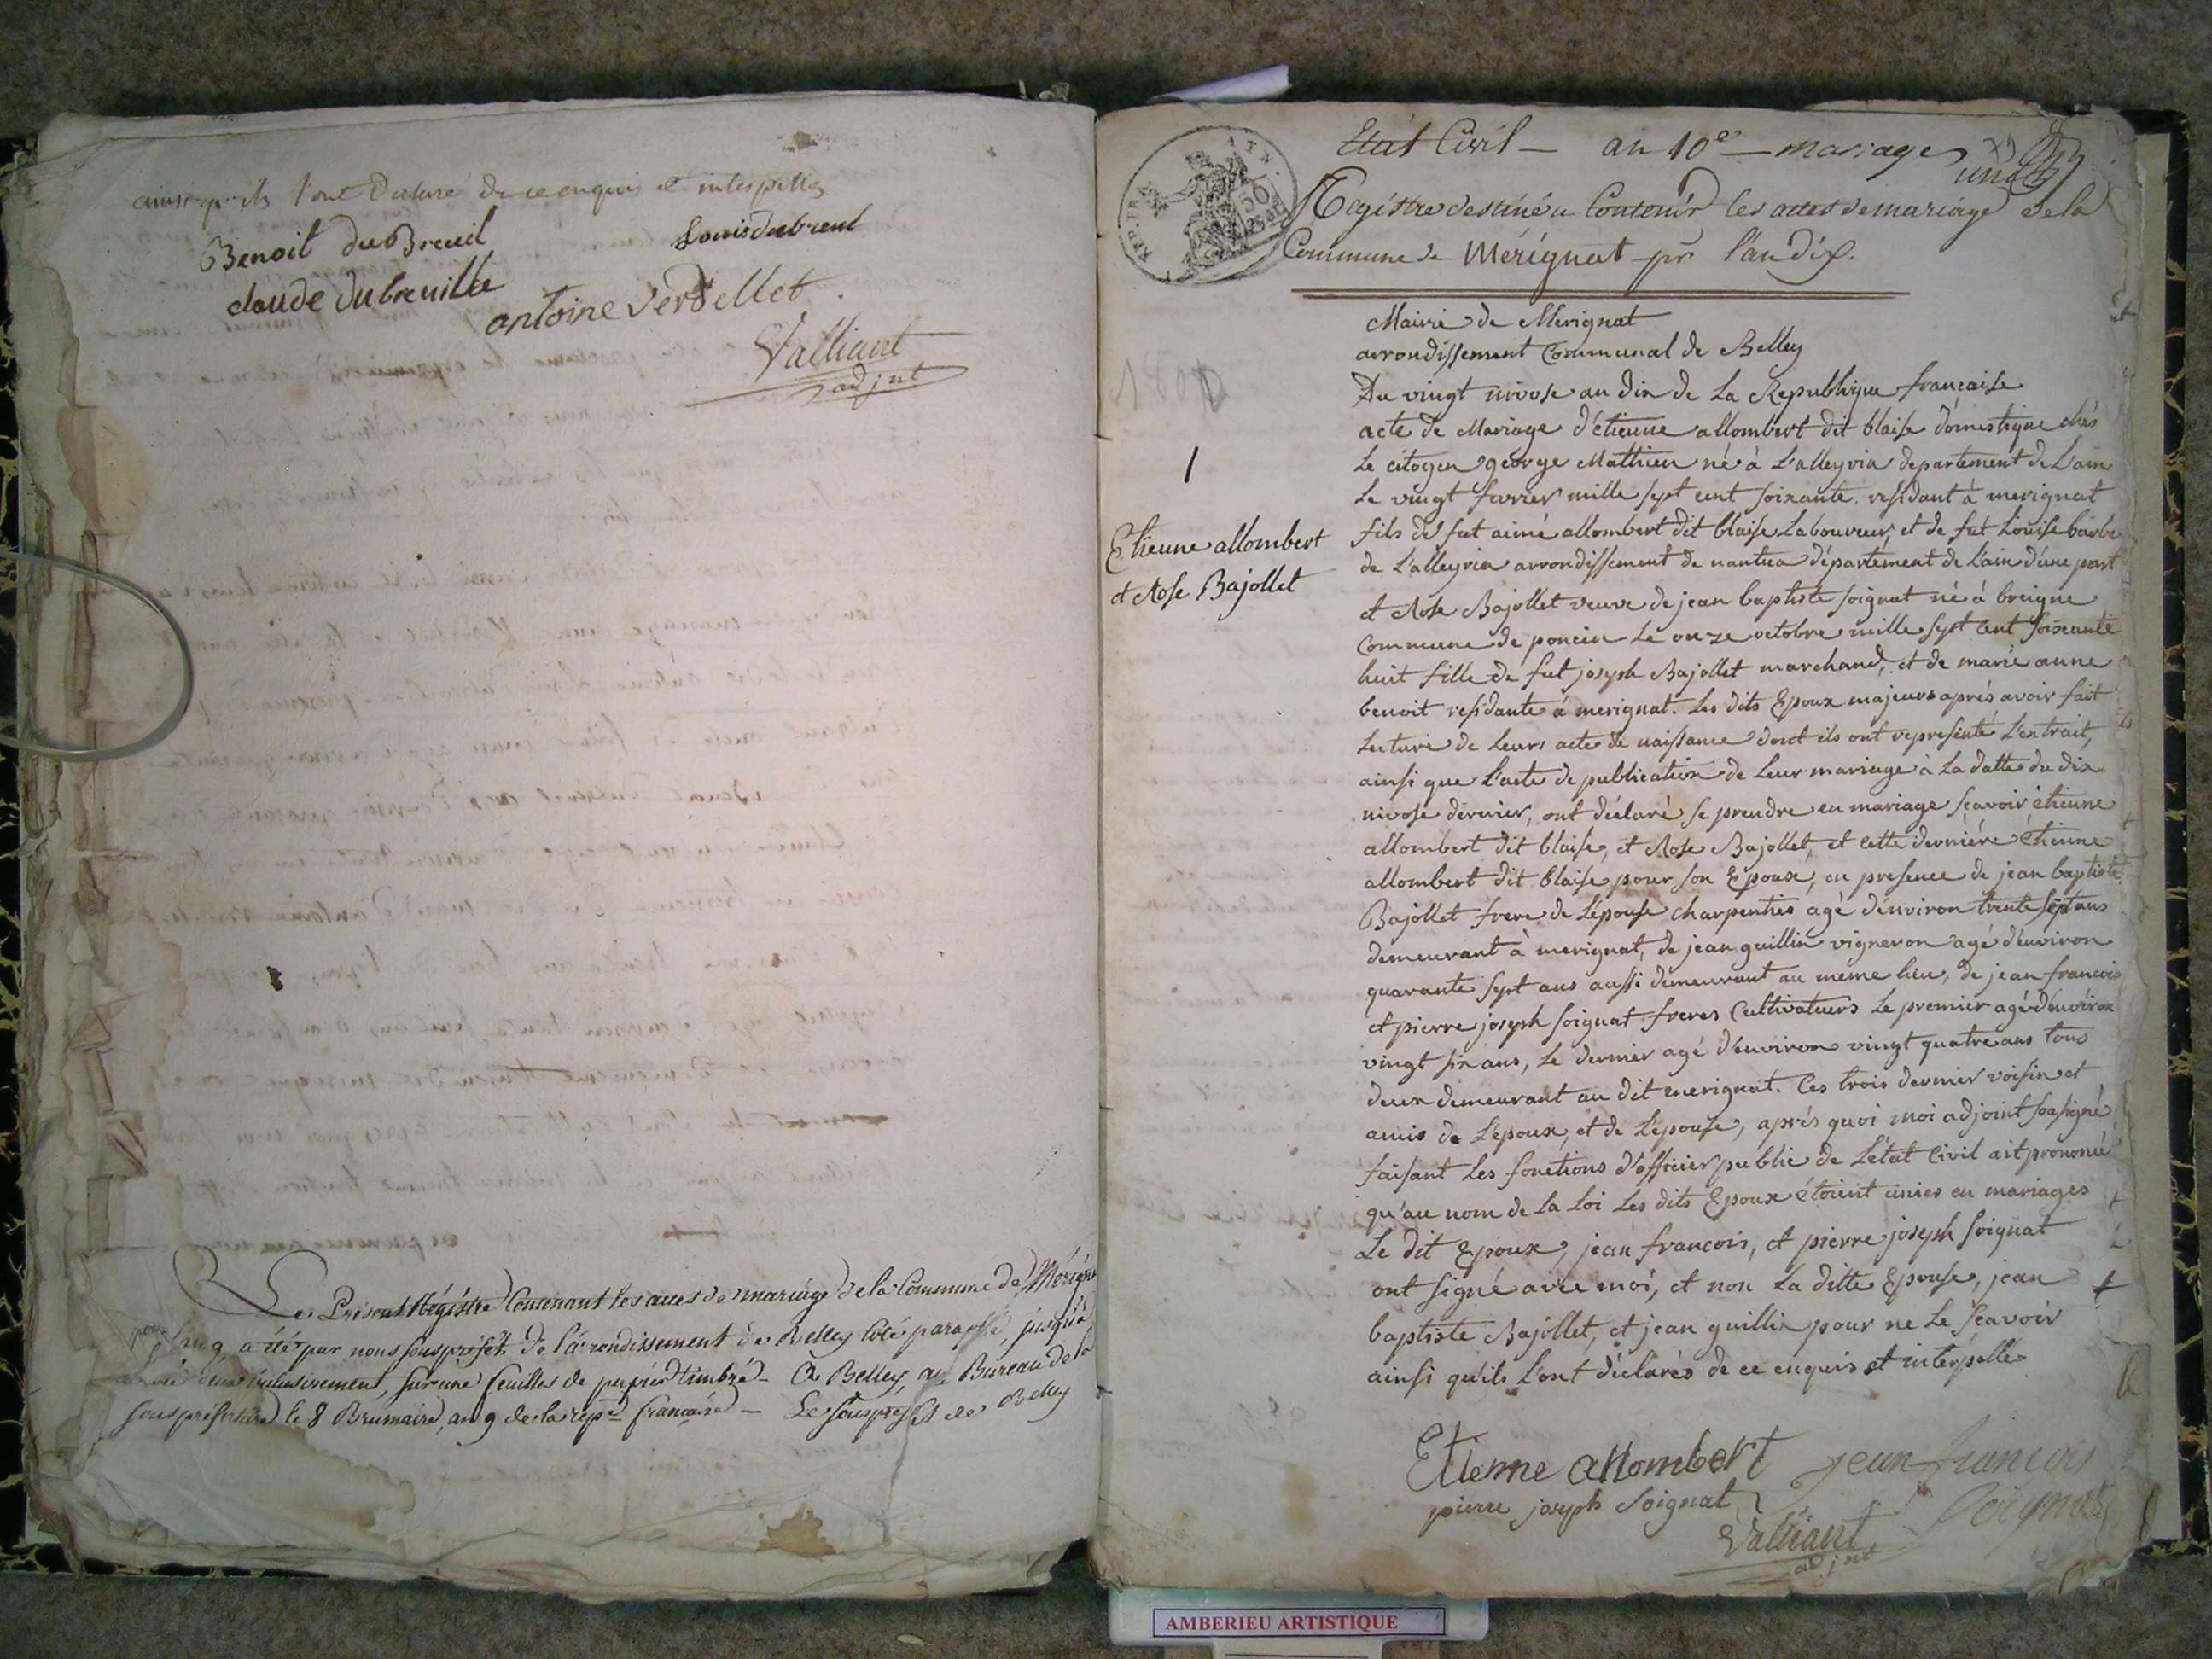 ainsi qu'ils l'ont Déclaré de ce enquis et interpellés
Benoit duBreuil
Louis dubreul
claude dubreuille
antoine Verdellet
Valliant
adjnt
Le Présent Régistre Contenant les actes de mariage de la Commune de Mérignat
pour l'an 9, a été par nous sous préfet de l'arrondissement de Belley coté paraphé, jusqu'à
deux inclusivement, sur une feuilles de papier timbré - A Belley, au Bureau de la
sous préfecture le 8 Brumaire, an 9 de la rép.e française - Le sous préfet de Belley
Etat Civil - an 10e - mariages
un
REP. FRA.
50
Régistre destiné a Contenir les actes de mariage de la
Commune de Mérignat pr l'an dix.
Mairie de Merignat
arrondissement Communal de Belley
Du vingt nivose an dix de La Republique francaise
1
acte de Mariage d'étienne allombert dit blaise domestique chés
Le citogen george Mathieu né à L'alleyria departement de L'ain
Le vingt fevrier mille sept cent soixante. residant à merignat
Etienne allombert
et Rose Bajollet
fils de fut aimé allombert dit blaise Laboureur, et de fut Louise barbe
de L'alleyria arrondissement de nantua département de L'ain d'une part
et Rose Bajollet veuve de jean baptiste soignat né à breigne
Commune de poncin Le onze octobre mille sept cent soixante
huit fille de fut joseph Bajollet marchand, et de marie anne
benoit residante à merignat. Les dits Epoux majeurs aprés avoir fait
Lecture de Leurs acte de naissance dont ils ont representé L'extrait,
ainsi que L'acte de publication de Leur mariage à La datte du dix
nivose dernier, ont déclaré se prendre en mariage sçavoir étienne
allombert dit blaise, et Rose Bajollet, et cette derniére étienne
allombert dit blaise pour son Epoux, en presence de jean baptiste
Bajollet frere de L'épouse charpentier agé d'environ trente sept ans
demeurant à merignat, de jean guillin vigneron agé d'environ
quarante sept ans aussi demeurant au même lieu, de jean francois
et pierre joseph soignat freres Cultivateurs Le premier agé d'environ
vingt six ans, Le dernier agé d'environ vingt quatre ans tous
deux demeurant au dit merignat. Ces trois dernier voisin et
amis de L'epoux, et de L'épouse, aprés quoi moi adjoint soasigné
faisant Les fonctions d'officier public de L'état Civil ait prononcé
qu'au nom de la Loi Les dits Epoux étoient unies en mariages
Le dit Epoux, jean francois, et pierre joseph soignat
ont signé avec moi, et non La ditte Epouse, jean
baptiste Bajollet, et jean guillin pour ne Le sçavoir
ainsi qu'ils L'ont déclarés de ce enquis et interpellés
Etienne allombert jean francois
pierre joseph Soignat Soignat
Valliant
adjnt
AMBERIEU ARTISTIQUE